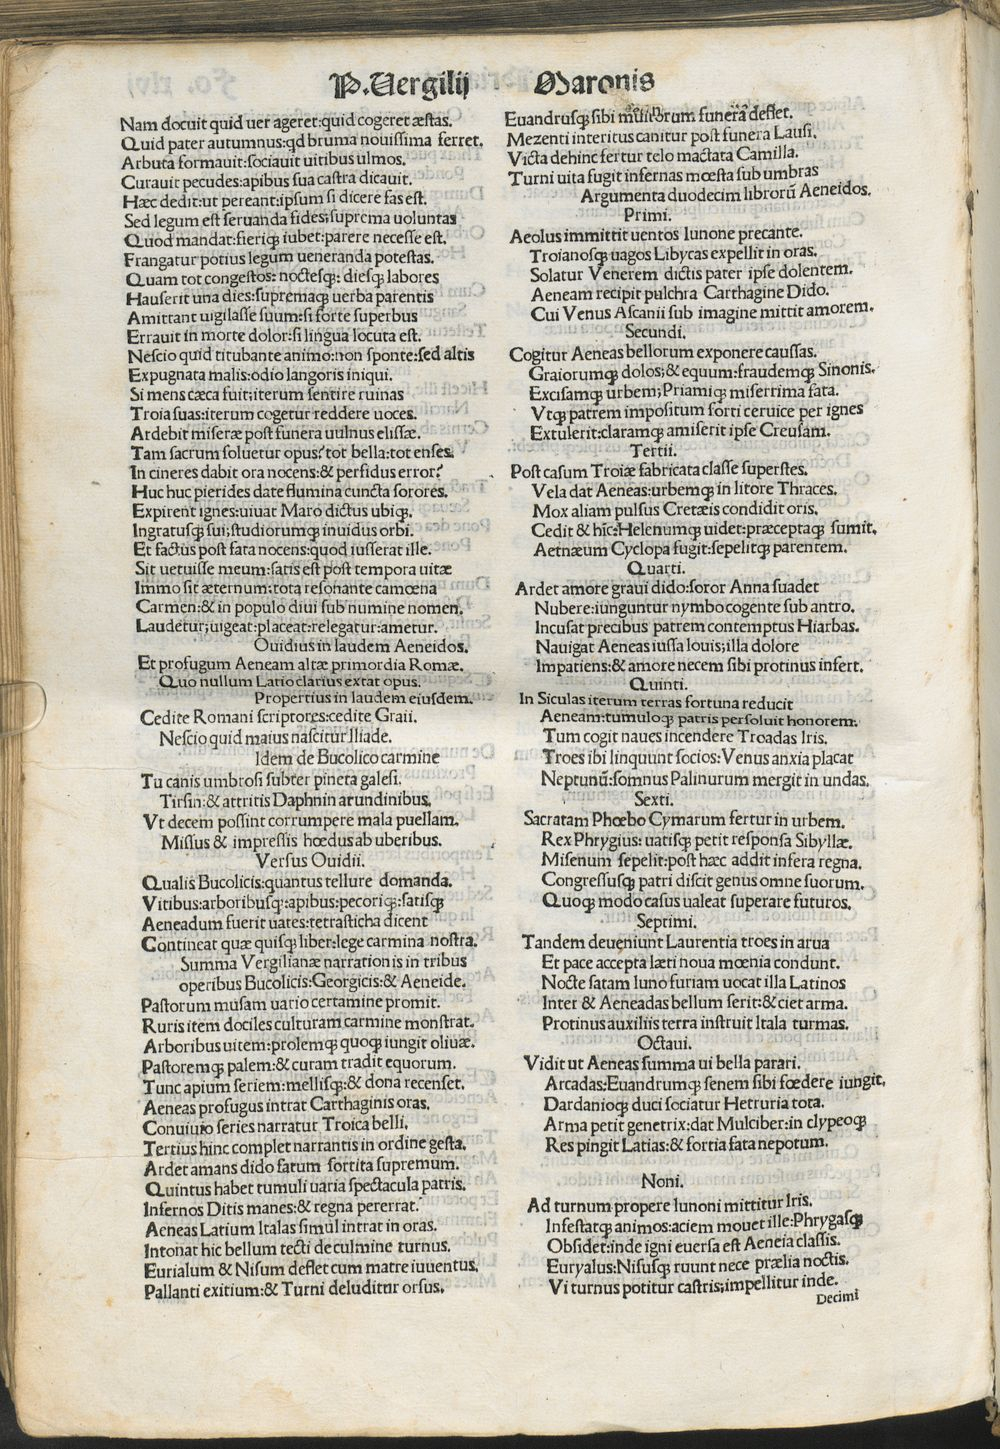 P.Uergilij Maronis
Nam docuit quid uer ageret:quid cogeret æstas.
Quid pater autumnus:qd bruma nouissima ferret.
Arbuta formauit:sociauit uitibus ulmos.
Curauit pecudes:apibus sua castra dicauit.
Hæc dedit:ut pereant:ipsum si dicere fas est.
Sed legum est seruanda fides;suprema uoluntas
Quod mandat:fieriqꝫ iubet:parere necesse est.
Frangatur potius legum ueneranda potestas.
Quam tot congestos: noctesqꝫ: diesqꝫ labores
Hauserit una dies:supremaqꝫ uerba parentis
Amittant uigilasse suum:si forte superbus
Errauit in morte dolor:si lingua locuta est.
Nescio quid titubante animo:non sponte:sed altis
Expugnata malis:odio langoris iniqui.
Si mens cæca fuit;iterum sentire ruinas
Troia suas:iterum cogetur reddere uoces.
Ardebit miseræ post funera uulnus elissæ.
Tam sacrum soluetur opus?tot bella:tot enses.
In cineres dabit ora nocens:& perfidus error?
Huc huc pierides date flumina cuncta sorores.
Expirent ignes:uiuat Maro dictus ubiqꝫ.
Ingratusqꝫ sui;studiorumqꝫ inuidus orbi.
Et factus post fata nocens:quod iusserat ille.
Sit uetuisse meum:satis est post tempora uitæ
Immo sit æternum:tota resonante camœna
Carmen:& in populo diui sub numine nomen.
Laudetur;uigeat:placeat:relegatur:ametur.
Ouidius in laudem Aeneidos.
Et profugum Aeneam altæ primordia Romæ.
Quo nullum Latio clarius extat opus.
Propertius in laudem eiusdem.
Cedite Romani scriptores:cedite Graii.
Nescio quid maius nascitur Iliade.
Idem de Bucolico carmine
Tu canis umbrosi subter pineta galesi.
Tirsin:& attritis Daphnin arundinibus.
Vt decem possint corrumpere mala puellam.
Missus & impressis hœdus ab uberibus.
Versus Ouidii.
Qualis Bucolicis:quantus tellure domanda.
Vitibus:arboribusqꝫ:apibus:pecoriqꝫ:satisqꝫ
Aeneadum fuerit uates:tetrasticha dicent
Contineat quæ quisqꝫ liber:lege carmina nostra.
Summa Vergilianæ narrationis in tribus
operibus Bucolicis:Georgicis:& Aeneide.
Pastorum musam uario certamine promit.
Ruris item dociles culturam carmine monstrat.
Arboribus uitem:prolemqꝫ quoqꝫ iungit oliuæ.
Pastoremqꝫ palem:& curam tradit equorum.
Tunc apium seriem:mellisqꝫ:& dona recenset.
Aeneas profugus intrat Carthaginis oras.
Conuiuio series narratur Troica belli.
Tertius hinc complet narrantis in ordine gesta.
Ardet amans dido fatum sortita supremum.
Quintus habet tumuli uaria spectacula patris.
Infernos Ditis manes:& regna pererrat.
Aeneas Latium Italas simul intrat in oras.
Intonat hic bellum tecti de culmine turnus.
Eurialum & Nisum deflet cum matre iuuentus.
Pallanti exitium:& Turni deluditur orsus.
Euandrusqꝫ sibi funera deflet.
Mezenti interitus canitur post funera Lausi.
Victa dehinc fertur telo mactata Camilla.
Turni uita fugit infernas mœsta sub umbras
Argumenta duodecim librorũ Aeneidos.
Primi.
Aeolus immittit uentos Iunone precante.
Troianosqꝫ uagos Libycas expellit in oras.
Solatur Venerem dictis pater ipse dolentem.
Aeneam recipit pulchra Carthagine Dido.
Cui Venus Ascanii sub imagine mittit amorem.
Secundi.
Cogitur Aeneas bellorum exponere caussas.
Graiorumqꝫ dolos;& equum:fraudemqꝫ Sinonis.
Excisamqꝫ urbem;Priamiqꝫ miserrima fata.
Vtqꝫ patrem impositum forti ceruice per ignes
Extulerit:claramqꝫ amiserit ipse Creusam.
Tertii.
Post casum Troiæ fabricata classe superstes.
Vela dat Aeneas:urbemqꝫ in litore Thraces.
Mox aliam pulsus Cretæis condidit oris.
Cedit & hic:Helenumqꝫ uidet:præceptaqꝫ sumit.
Aetnæum Cyclopa fugit:sepelitqꝫ parentem.
Quarti.
Ardet amore graui dido:soror Anna suadet
Nubere:iunguntur nymbo cogente sub antro.
Incusat precibus patrem contemptus Hiarbas.
Nauigat Aeneas iussa Iouis;illa dolore
Impatiens:& amore necem sibi protinus infert.
Quinti.
In Siculas iterum terras fortuna reducit
Aeneam:tumuloqꝫ patris persoluit honorem.
Tum cogit naues incendere Troadas Iris.
Troes ibi linquunt socios:Venus anxia placat
Neptunũ:somnus Palinurum mergit in undas.
Sexti.
Sacratam Phœbo Cymarum fertur in urbem.
Rex Phrygius: uatisqꝫ petit responsa Sibyllæ.
Misenum sepelit:post hæc addit infera regna.
Congressusqꝫ patri discit genus omne suorum.
Quoqꝫ modo casus ualeat superare futuros.
Septimi.
Tandem deueniunt Laurentia troes in arua
Et pace accepta læti noua mœnia condunt.
Nocte satam Iuno furiam uocat illa Latinos
Inter & Aeneadas bellum serit:& ciet arma.
Protinus auxiliis terra instruit Itala turmas.
Octaui.
Vidit ut Aeneas summa ui bella parari.
Arcadas:Euandrumqꝫ senem sibi fœdere iungit.
Dardanioqꝫ duci sociatur Hetruria tota.
Arma petit genetrix:dat Mulciber:in clypeoqꝫ
Res pingit Latias:& fortia fata nepotum.
Noni.
Ad turnum propere Iunoni mittitur Iris.
Infestatqꝫ animos:aciem mouet ille:Phrygasqꝫ
Obsidet:inde igni euersa est Aeneia classis.
Euryalus:Nisusqꝫ ruunt nece prælia noctis.
Vi turnus potitur castris;impellitur inde.
Decimi